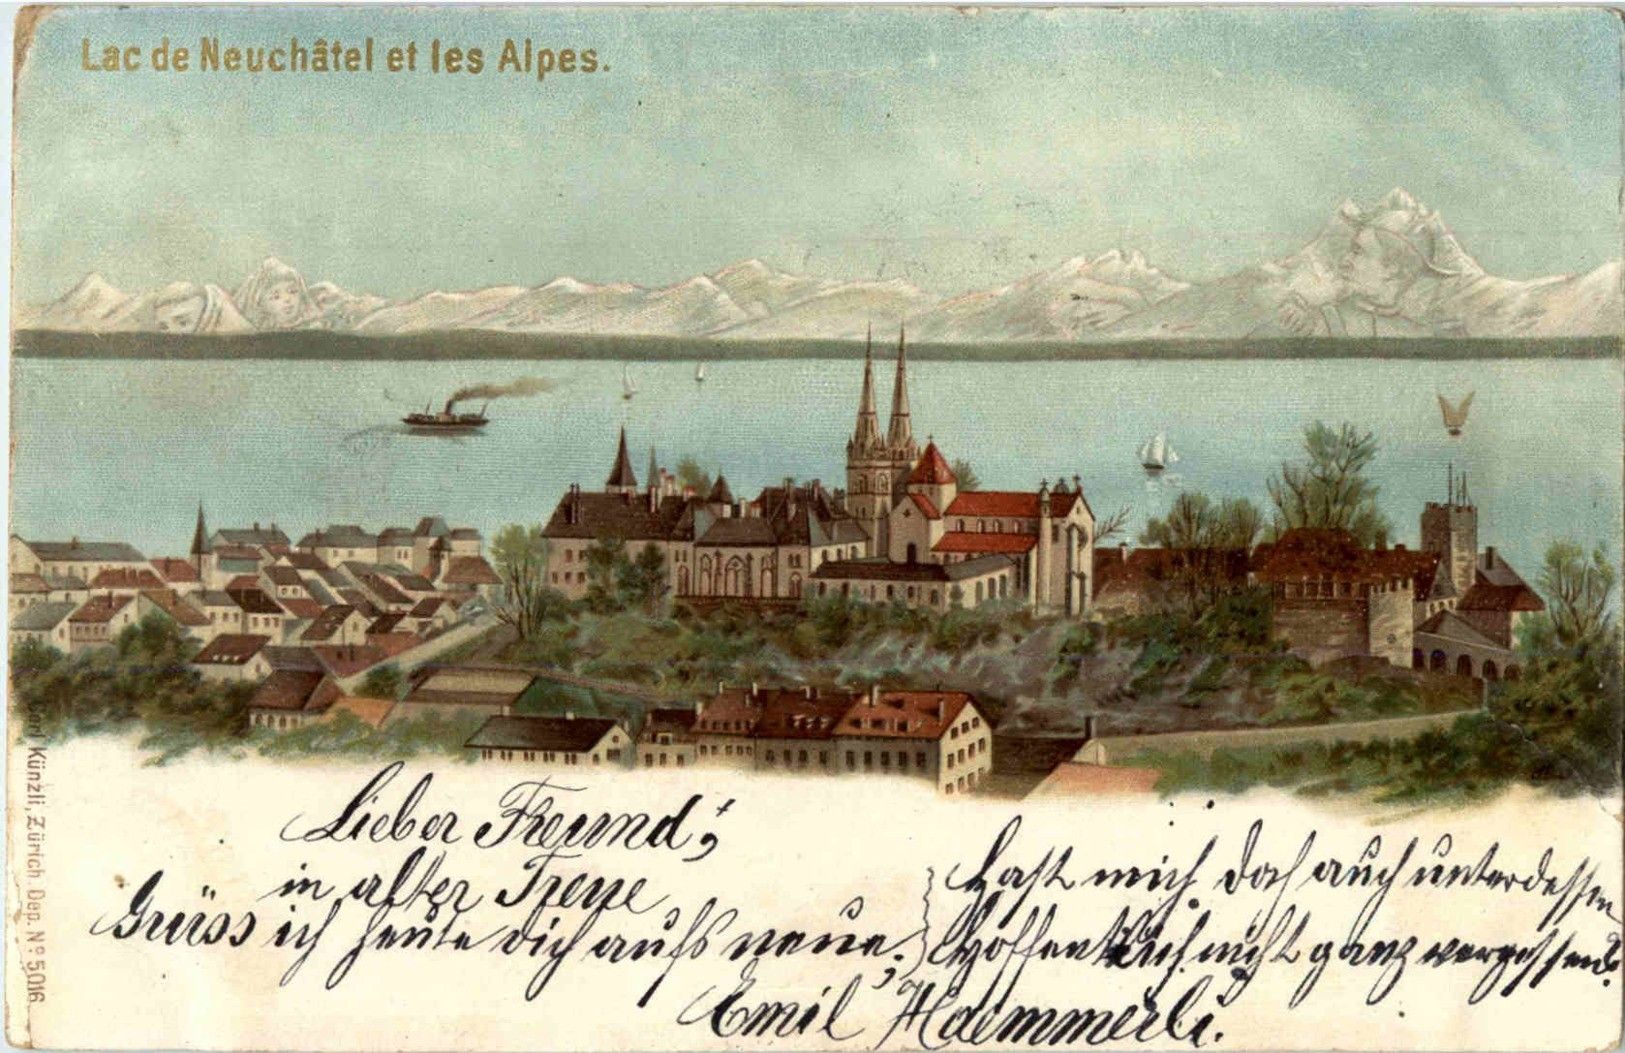 Lac de Neuchâtel et les Alpes.
Carl Künzli, Zürich. Dep. Nº 5016
Lieber Freund;
in alter Treue
Grüss ich heute dich aufs neue;
Hast mich doch auch unterdessen
Hoffentlich nicht ganz vergessen!
Emil Haemmerli.